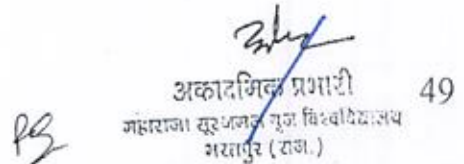 अकादमिक प्रभारी
49
महाराजा सूरजमल बृज विश्वविद्यालय
भरतपुर (राज.)